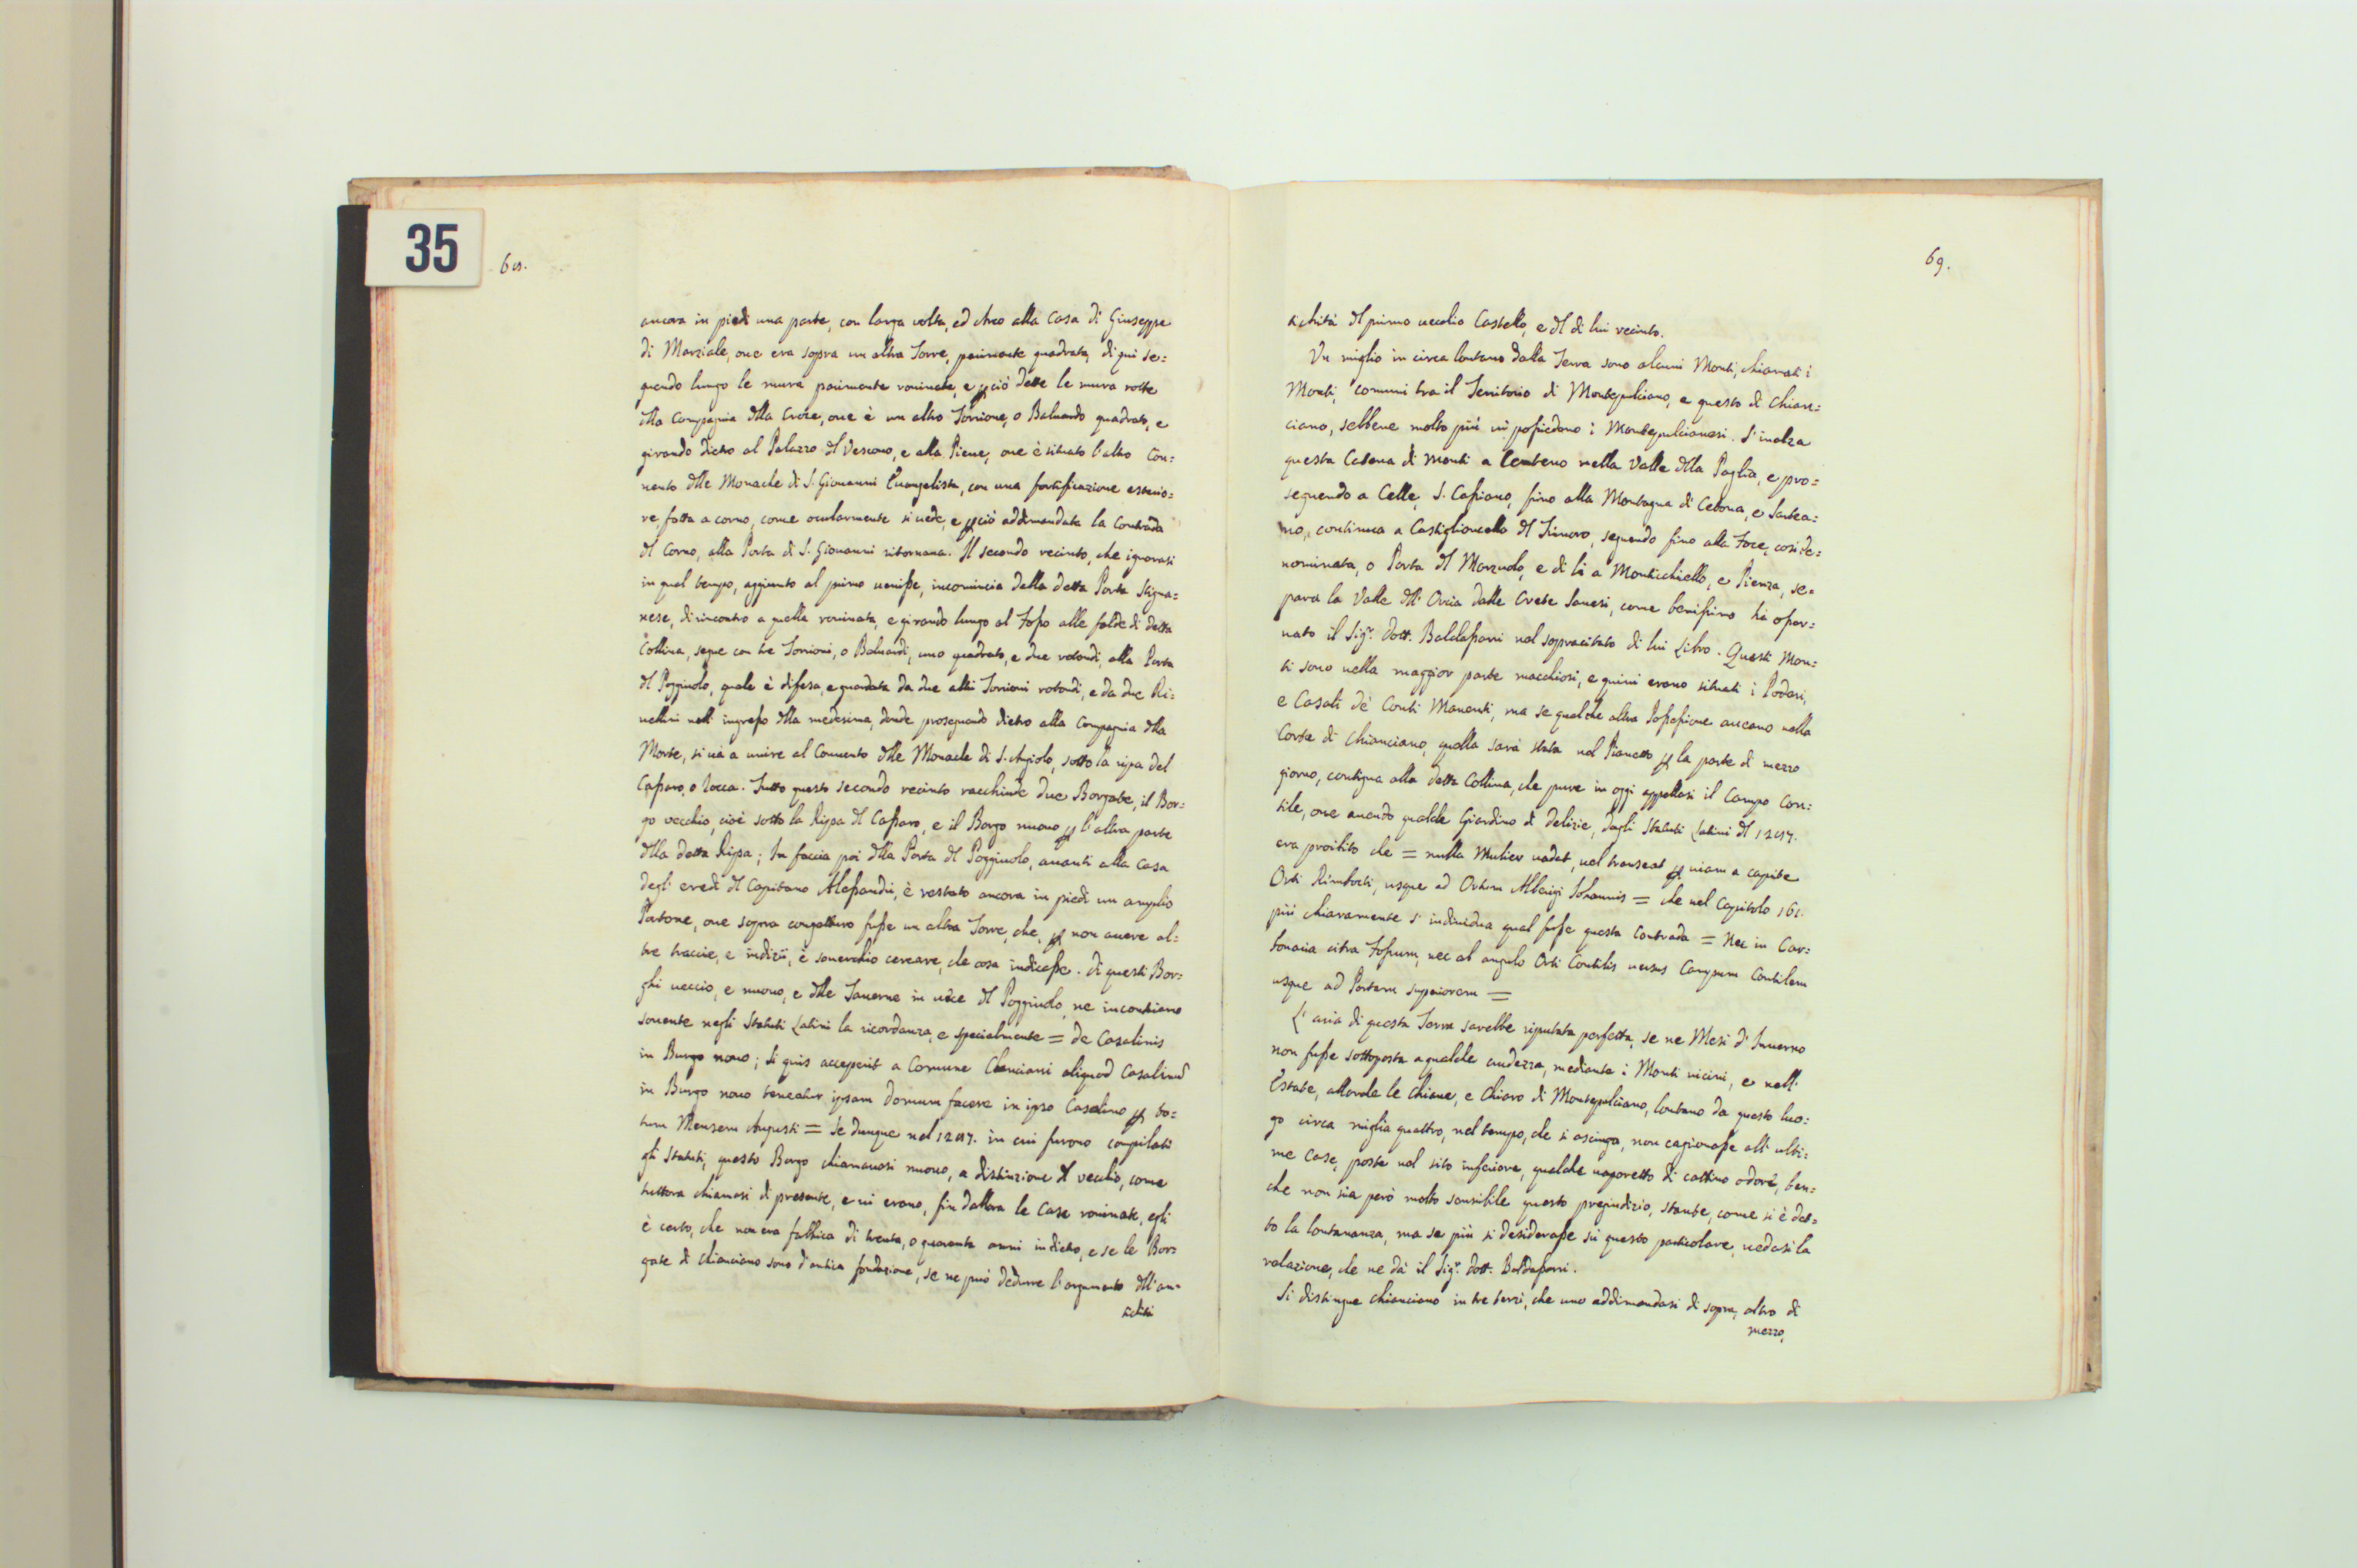 35
68.
ancora in piedi una parte, con larga volta, ed Arco alla Casa di Giuseppe
di Marziale, oue era sopra un altra Torre, parimente quadrata, di qui se=
guendo lungo le mura parimente rouinate, e perciò dette le mura rotte
della Compagnia della Croce, oue è un altro Torrione, o Baluardo quadrato, e
girando dietro al Palazzo del Vescouo, e alla Pieue, oue è situato l'altro Con=
uento delle Monache di S. Giouanni Euangelista, con una fortificazione esterio=
re, fatta a corno, come ocularmente si uede, e perciò addimandata la Contrada
del Corno, alla Porta di S. Giouanni ritornaua. Il secondo recinto, che ignorasi
in qual tempo, aggiunto al primo uenisse, incomincia dalla detta Porta Signa=
nese, di rincontro a quella rouinata, e girando lungo al Fosso alle falde di detta
Collina, segue con tre Torrioni, o Baluardi, uno quadrato, e due rotondi, alla Porta
del Poggiuolo, quale è difesa, e guardata da due altri Torrioni rotondi, e da due Ri=
uellini nell'ingresso della medesima, donde proseguendo dietro alla Compagnia della
Morte, si uà a unire al Conuento delle Monache di S. Angiolo, sotto la ripa del
Cassaro, o Rocca. Tutto questo secondo recinto racchiude due Borgate, il Bor=
go vecchio, cioè sotto la Ripa del Cassaro, e il Borgo nuouo per l'altra parte
della detta Ripa; In faccia poi della Porta del Poggiuolo, auanti alla casa
degl' eredi del Capitano Alessandri, è restato ancora in piedi un ampio
Portone, oue sopra congetturo fusse un altra Torre, che, per non auere al=
tre traccie, e indizii, è souerchio cercare, che cosa indicasse. Di questi Bor=
ghi ueccio, e nuouo, e delle Tauerne in uece del Poggiuolo, ne incontriamo
souente negli Statuti Latini la ricordanza, e specialmente = de Casalinis
in Burgo nouo; Si quis acceperit a Comune Clanciani aliquod Casalinũ
in Burgo nouo teneatur ipsam domum facere in ipso Casalino per to=
tum Mensem Augusti = Se dunque nel 1287. in cui furono compilati
gli Statuti, questo Borgo chiamauasi nuouo, a distinzione del vecchio, come
tuttora chiamasi di presente, e ui erano, fin dallora le Case rouinate, egli
è certo, che non era fabbrica di trenta, o quaranta anni indietro, e se le Bor=
gate di Chianciano sono d'antica fondazione, se ne può dedurre l'argumento dell'an=
tichità
69.
tichità del primo uecchio Castello, e del di lui recinto.
Un miglio in circa lontano dalla Terra sono alcuni Monti, chiamati i
Monti, comuni tra il Territorio di Montepulciano, e questo di Chian=
ciano, sebbene molto più ui possiedono i Montepulcianesi. S'inalza
questa Catena di Monti a Centeno nella Valle della Paglia, e pro=
seguendo a Celle, S. Casciano, fino alla Montagna di Cetona, e Sartea=
no, continua a Castiglioncello del Trinoro, seguendo fino alla Foce, così de=
nominata, o Porta del Marzuolo, e di là a Monticchiello, e Pienza, se=
para la Valle dell'Orcia dalle Crete Sanesi, come benissimo hà osser=
uato il Sigr. Dott. Baldassarri nel sopracitato di lui Libro. Questi Mon=
ti sono nella maggior parte macchiosi, e quiui erano situati i Poderi,
e Casali de' Conti Manenti, ma se qualche altra Possessione aueano nella
Corte di Chianciano, quella sarà stata nel Pianetto per la parte di mezzo
giorno, contigua alla detta Collina, che pure in oggi appellasi il Campo Con=
tile, oue auendo qualche Giardino di delizie, dagli Statuti Latini del 1287.
era proibito che = nulla Mulier uadat, uel transeat per uiam a capite
Orti Rimbocti, usque ad Ortum Alberigi Iohannis = che nel Capitolo 161.
più chiaramente s'indiuidua qual fusse questa Contrada = Nec in Car=
bonaia citra Fossum, nec al angulo Orti Contilis uersus Campum Contilem
usque ad Portam superiorem =
L'aria di questa Terra sarebbe riputata perfetta, se ne Mesi d'Inuerno
non fusse sottoposta a qualche crudezza, mediante i Monti vicini, e nell'
Estate, allorche le Chiane, e Chiaro di Montepulciano, lontano da questo luo=
go circa miglia quattro, nel tempo, che si asciuga, non cagionasse all'ulti=
me Case, poste nel sito inferiore, qualche uaporetto di cattiuo odore, ben=
che non sia però molto sensibile questo pregiudizio, stante, come si è det=
to la lontananza, ma se più si desiderasse sù questo particolare, uedasi la
relazione, che ne dà il Sigr. Dott. Baldassarri.
Si distingue Chianciano in tre terzi, che uno addimandasi di sopra, altro di
mezzo,